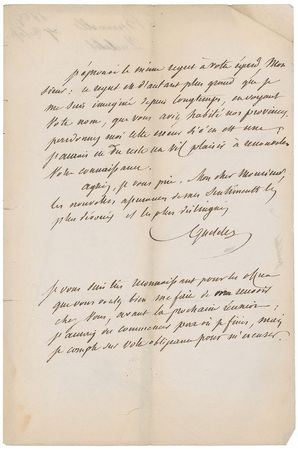 j'éprouve le même regret à votre égard, Mon
sieur: ce regret est d'autant plus grand que je
me suis imaginé depuis longtemps, en voyant
votre nom, que vous aviez habité nos provinces.
pardonnez moi cette erreur si c'en est une
j'aurais eu du reste un vif plaisir à renouveler
votre connaissance.
agréez, je vous prie, Mon cher Monsieur,
les nouvelles assurances de mes sentiments les
plus dévoués et les plus distingués
Quetelet
je vous suis très reconnaissant pour les offres
que vous voulez bien me faire de me
chez vous, avant la prochaine réunion;
j'aurais dû commencer par où je finis, mais
je compte sur votre obligeance pour m'excuser.